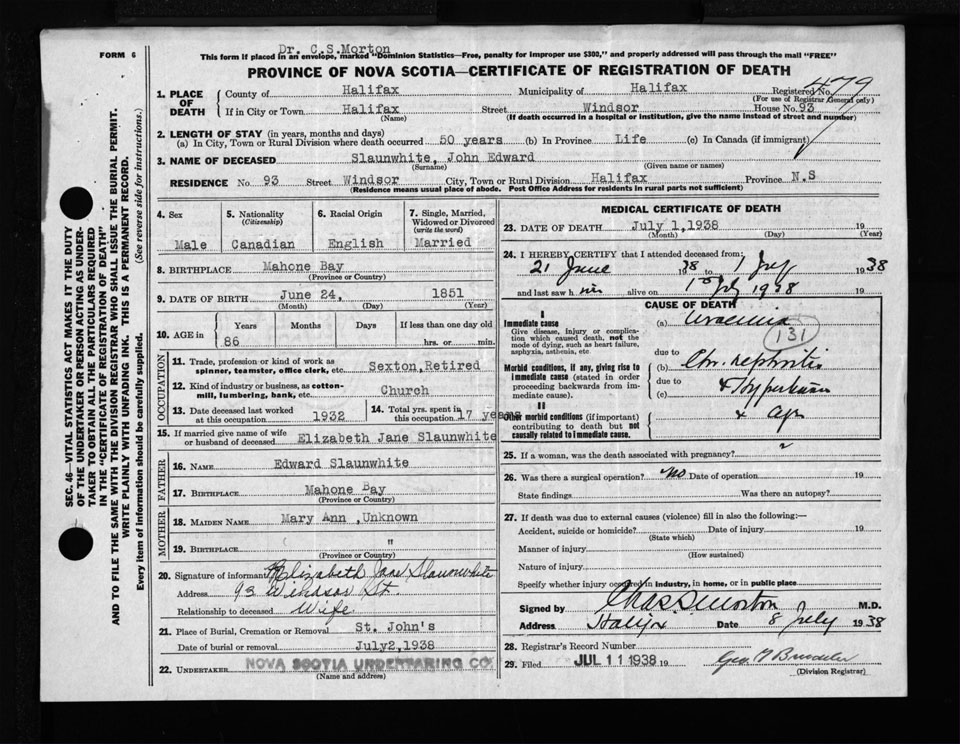 Dr. C.S.Morton
FORM 6
This form if placed in an envelope, marked "Dominion Statistics—Free, penalty for improper use $300," and properly addressed will pass through the mail "FREE"
PROVINCE OF NOVA SCOTIA—CERTIFICATE OF REGISTRATION OF DEATH
479
1. PLACE OF DEATH
County of Halifax Municipality of Halifax Registered No.
(For use of Registrar General only)
If in City or Town Halifax Street Windsor House No. 93
(Name) (If death occurred in a hospital or institution, give the name instead of street and number)
2. LENGTH OF STAY (in years, months and days)
(a) In City, Town or Rural Division where death occurred 50 years (b) In Province Life (c) In Canada (if immigrant)
3. NAME OF DECEASED Slaunwhite, John Edward
(Surname) (Given name or names)
RESIDENCE No. 93 Street Windsor City, Town or Rural Division Halifax Province N.S
(Residence means usual place of abode. Post Office Address for residents in rural parts not sufficient)
4. Sex
Male
5. Nationality
(Citizenship)
Canadian
6. Racial Origin
English
7. Single, Married, Widowed or Divorced
(write the word)
Married
8. BIRTHPLACE Mahone Bay
(Province or Country)
9. DATE OF BIRTH June 24, 1851
(Month) (Day) (Year)
10. AGE in
Years Months Days If less than one day old
86 hrs. or min.
OCCUPATION
11. Trade, profession or kind of work as
spinner, teamster, office clerk, etc. Sexton,Retired
12. Kind of industry or business, as cotton-
mill, lumbering, bank, etc. Church
13. Date deceased last worked
at this occupation 1932
14. Total yrs. spent in
this occupation 17 years
15. If married give name of wife
or husband of deceased Elizabeth Jane Slaunwhite
FATHER
16. NAME Edward Slaunwhite
17. BIRTHPLACE Mahone Bay
(Province or Country)
MOTHER
18. MAIDEN NAME Mary Ann ,Unknown
19. BIRTHPLACE "
(Province or Country)
20. Signature of informant Elizabeth Jane Slaunwhite
Address 93 Windsor St.
Relationship to deceased Wife
21. Place of Burial, Cremation or Removal St. John's
Date of burial or removal July2,1938
22. UNDERTAKER NOVA SCOTIA UNDERTAKING CO
(Name and address)
MEDICAL CERTIFICATE OF DEATH
23. DATE OF DEATH July 1,1938 19
(Month) (Day) (Year)
24. I HEREBY CERTIFY that I attended deceased from:
21 June 1938 to 1 July 1938
and last saw h im alive on 1st July 1938 19
CAUSE OF DEATH
I
Immediate cause
Give disease, injury or complication which caused death, not the mode of dying, such as heart failure, asphyxia, asthenia, etc
(a) Uraemia
131
due to
Morbid conditions, if any, giving rise to immediate cause (stated in order proceeding backwards from immediate cause).
(b) Chr. nephritis
due to
(c)
II
Other morbid conditions (if important) contributing to death but not causally related to immediate cause.
25. If a woman, was the death associated with pregnancy?
26. Was there a surgical operation? no Date of operation 19
State findings Was there an autopsy?
27. If death was due to external causes (violence) fill in also the following:—
Accident, suicide or homicide? Date of injury 19
(State which)
Manner of injury
(How sustained)
Nature of injury
Specify whether injury occurred in industry, in home, or in public place
Signed by Chas. S. Morton M.D.
Address Halifax Date 8 July 1938
28. Registrar's Record Number
29. Filed JUL 11 1938 19
(Division Registrar)
SEC. 46—VITAL STATISTICS ACT MAKES IT THE DUTY
OF THE UNDERTAKER OR PERSON ACTING AS UNDER-
TAKER TO OBTAIN ALL THE PARTICULARS REQUIRED
IN THE "CERTIFICATE OF REGISTRATION OF DEATH"
AND TO FILE THE SAME WITH THE DIVISION REGISTRAR WHO SHALL ISSUE THE BURIAL PERMIT.
WRITE PLAINLY WITH UNFADING INK. THIS IS A PERMANENT RECORD.
Every item of information should be carefully supplied. (See reverse side for instructions.)